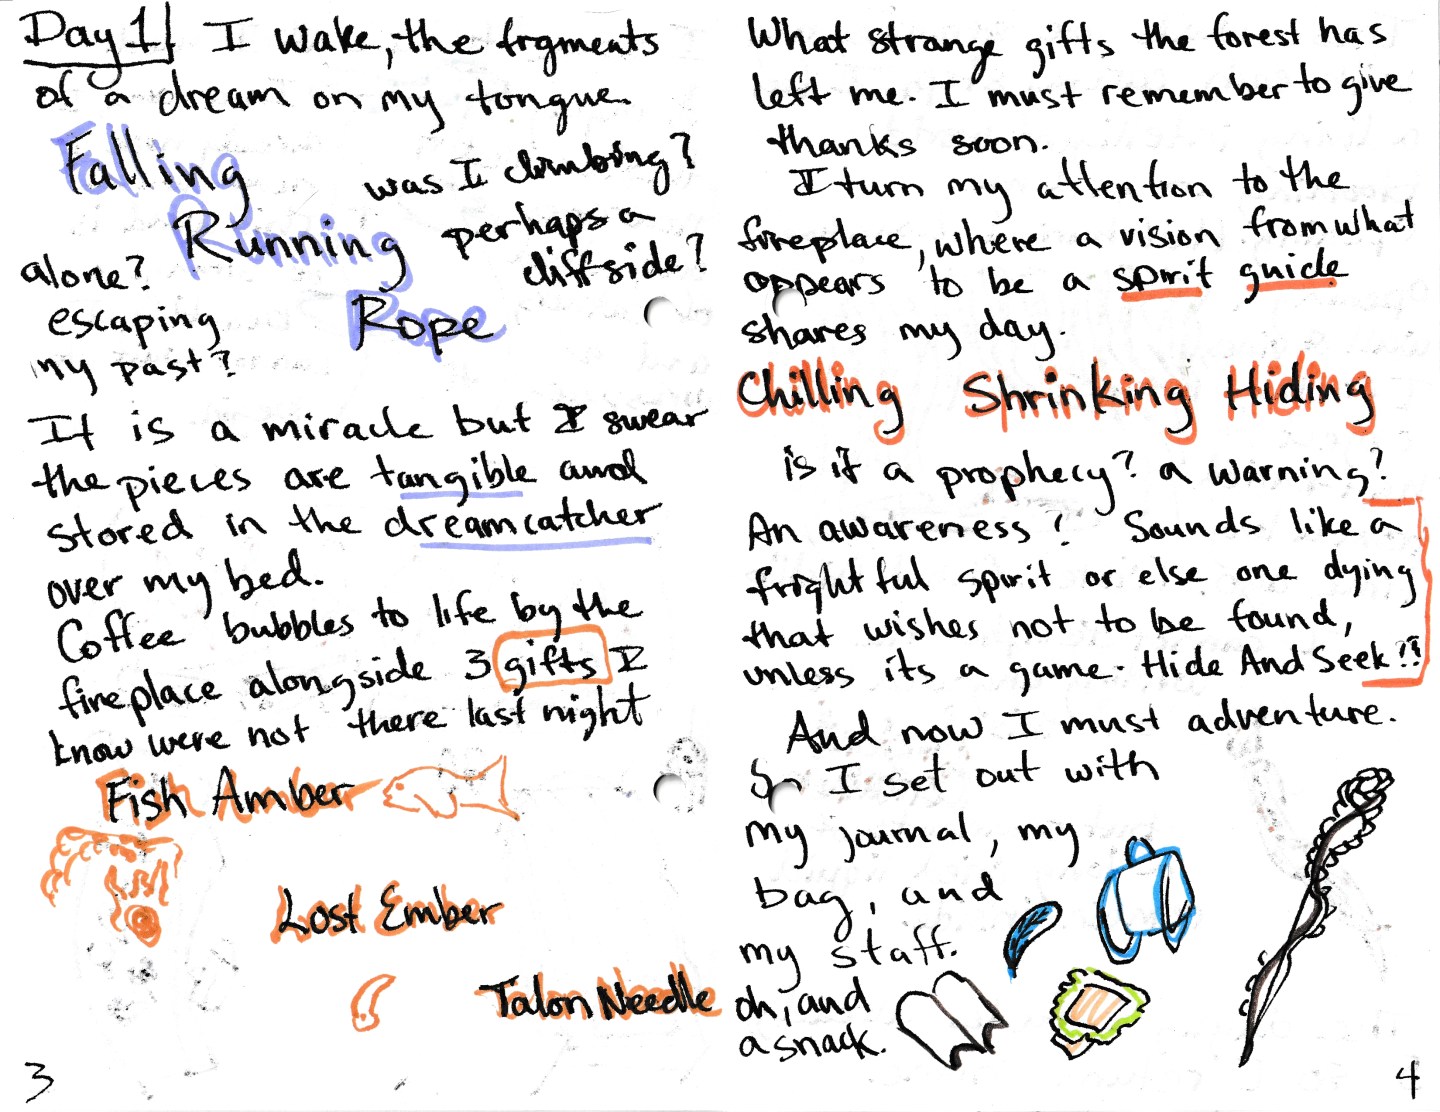 Day 1 I wake, the frgments
of a dream on my tongue.
Falling was I climbing?
Running perhaps a
alone? cliffside?
escaping Rope
my past?
It is a miracle but I swear
the pieces are tangible and
stored in the dreamcatcher
over my bed.
Coffee bubbles to life by the
fireplace alongside 3 gifts I
know were not there last night
Fish Amber
Lost Ember
Talon Needle
3
What strange gifts the forest has
left me. I must remember to give
thanks soon.
I turn my attention to the
fireplace, where a vision from what
appears to be a spirit guide
shares my day.
Chilling Shrinking Hiding
is it a prophecy? a warning?
An awareness? Sounds like a
frightful spirit or else one dying
that wishes not to be found,
unless its a game. Hide And Seek!?
And now I must adventure.
So I set out with
my journal, my
bag, and
my staff.
oh, and
a snack.
4